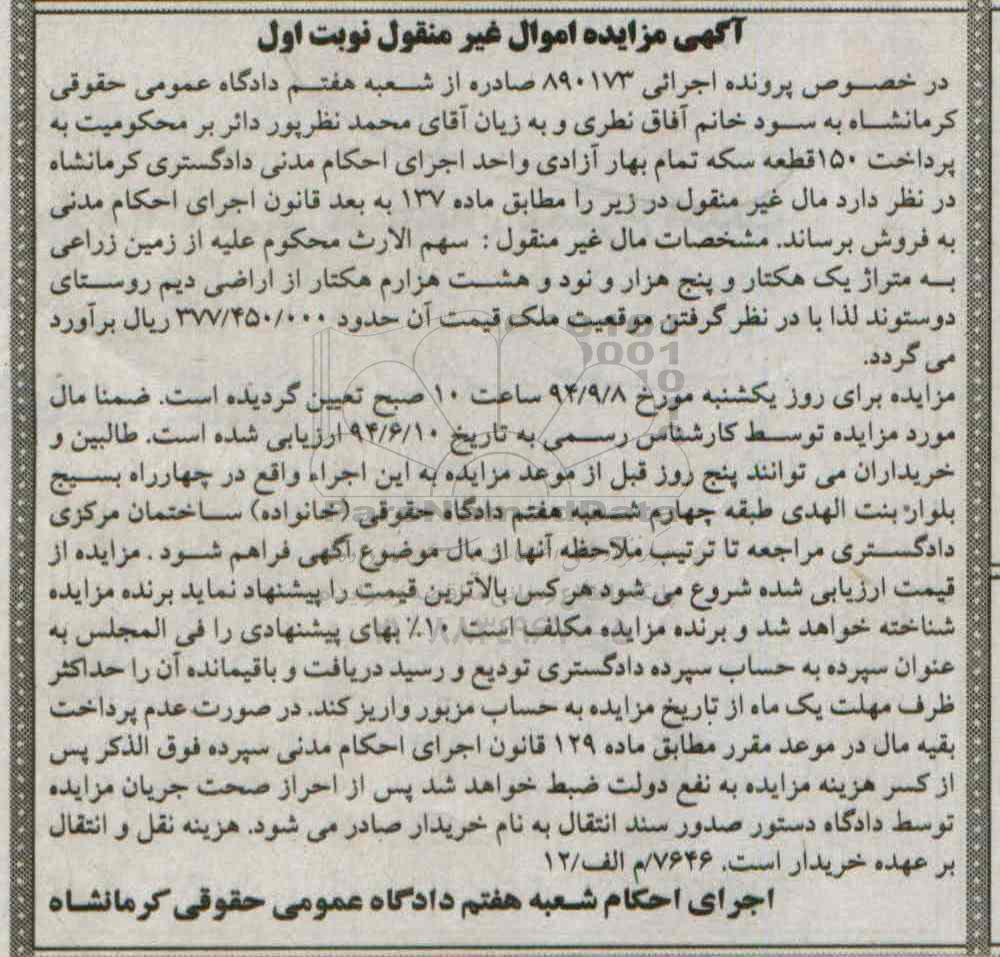 آگهی مزایده اموال غیر منقول نوبت اول
در خصوص پرونده اجرائی ۸۹۰۱۷۳ صادره از شعبه هفتم دادگاه عمومی حقوقی
کرمانشاه به سود خانم آفاق نظری و به زیان آقای محمد نظرپور دائر بر محکومیت به
پرداخت ۱۵۰قطعه سکه تمام بهار آزادی واحد اجرای احکام مدنی دادگستری کرمانشاه
در نظر دارد مال غیر منقول در زیر را مطابق ماده ۱۳۷ به بعد قانون اجرای احکام مدنی
به فروش برساند. مشخصات مال غیر منقول : سهم الارث محکوم علیه از زمین زراعی
به متراژ یک هکتار و پنج هزار و نود و هشت هزارم هکتار از اراضی دیم روستای
دوستوند لذا با در نظر گرفتن موقعیت ملک قیمت آن حدود ۳۷۷/۴۵۰/۰۰۰ ریال برآورد
می گردد.
مزایده برای روز یکشنبه مورخ ۹۴/۹/۸ ساعت ۱۰ صبح تعیین گردیده است. ضمنا مال
مورد مزایده توسط کارشناس رسمی به تاریخ ۹۴/۶/۱۰ ارزیابی شده است. طالبین و
خریداران می توانند پنج روز قبل از موعد مزایده به این اجراء واقع در چهارراه بسیج
بلوار بنت الهدی طبقه چهارم شعبه هفتم دادگاه حقوقی (خانواده) ساختمان مرکزی
دادگستری مراجعه تا ترتیب ملاحظه آنها از مال موضوع آگهی فراهم شود . مزایده از
قیمت ارزیابی شده شروع می شود هر کس بالاترین قیمت را پیشنهاد نماید برنده مزایده
شناخته خواهد شد و برنده مزایده مکلف است ۱۰٪ بهای پیشنهادی را فی المجلس به
عنوان سپرده به حساب سپرده دادگستری تودیع و رسید دریافت و باقیمانده آن را حداکثر
ظرف مهلت یک ماه از تاریخ مزایده به حساب مزبور واریز کند. در صورت عدم پرداخت
بقیه مال در موعد مقرر مطابق ماده ۱۲۹ قانون اجرای احکام مدنی سپرده فوق الذکر پس
از کسر هزینه مزایده به نفع دولت ضبط خواهد شد پس از احراز صحت جریان مزایده
توسط دادگاه دستور صدور سند انتقال به نام خریدار صادر می شود. هزینه نقل و انتقال
بر عهده خریدار است. ۷۶۴۶/م الف/۱۲
اجرای احکام شعبه هفتم دادگاه عمومی حقوقی کرمانشاه